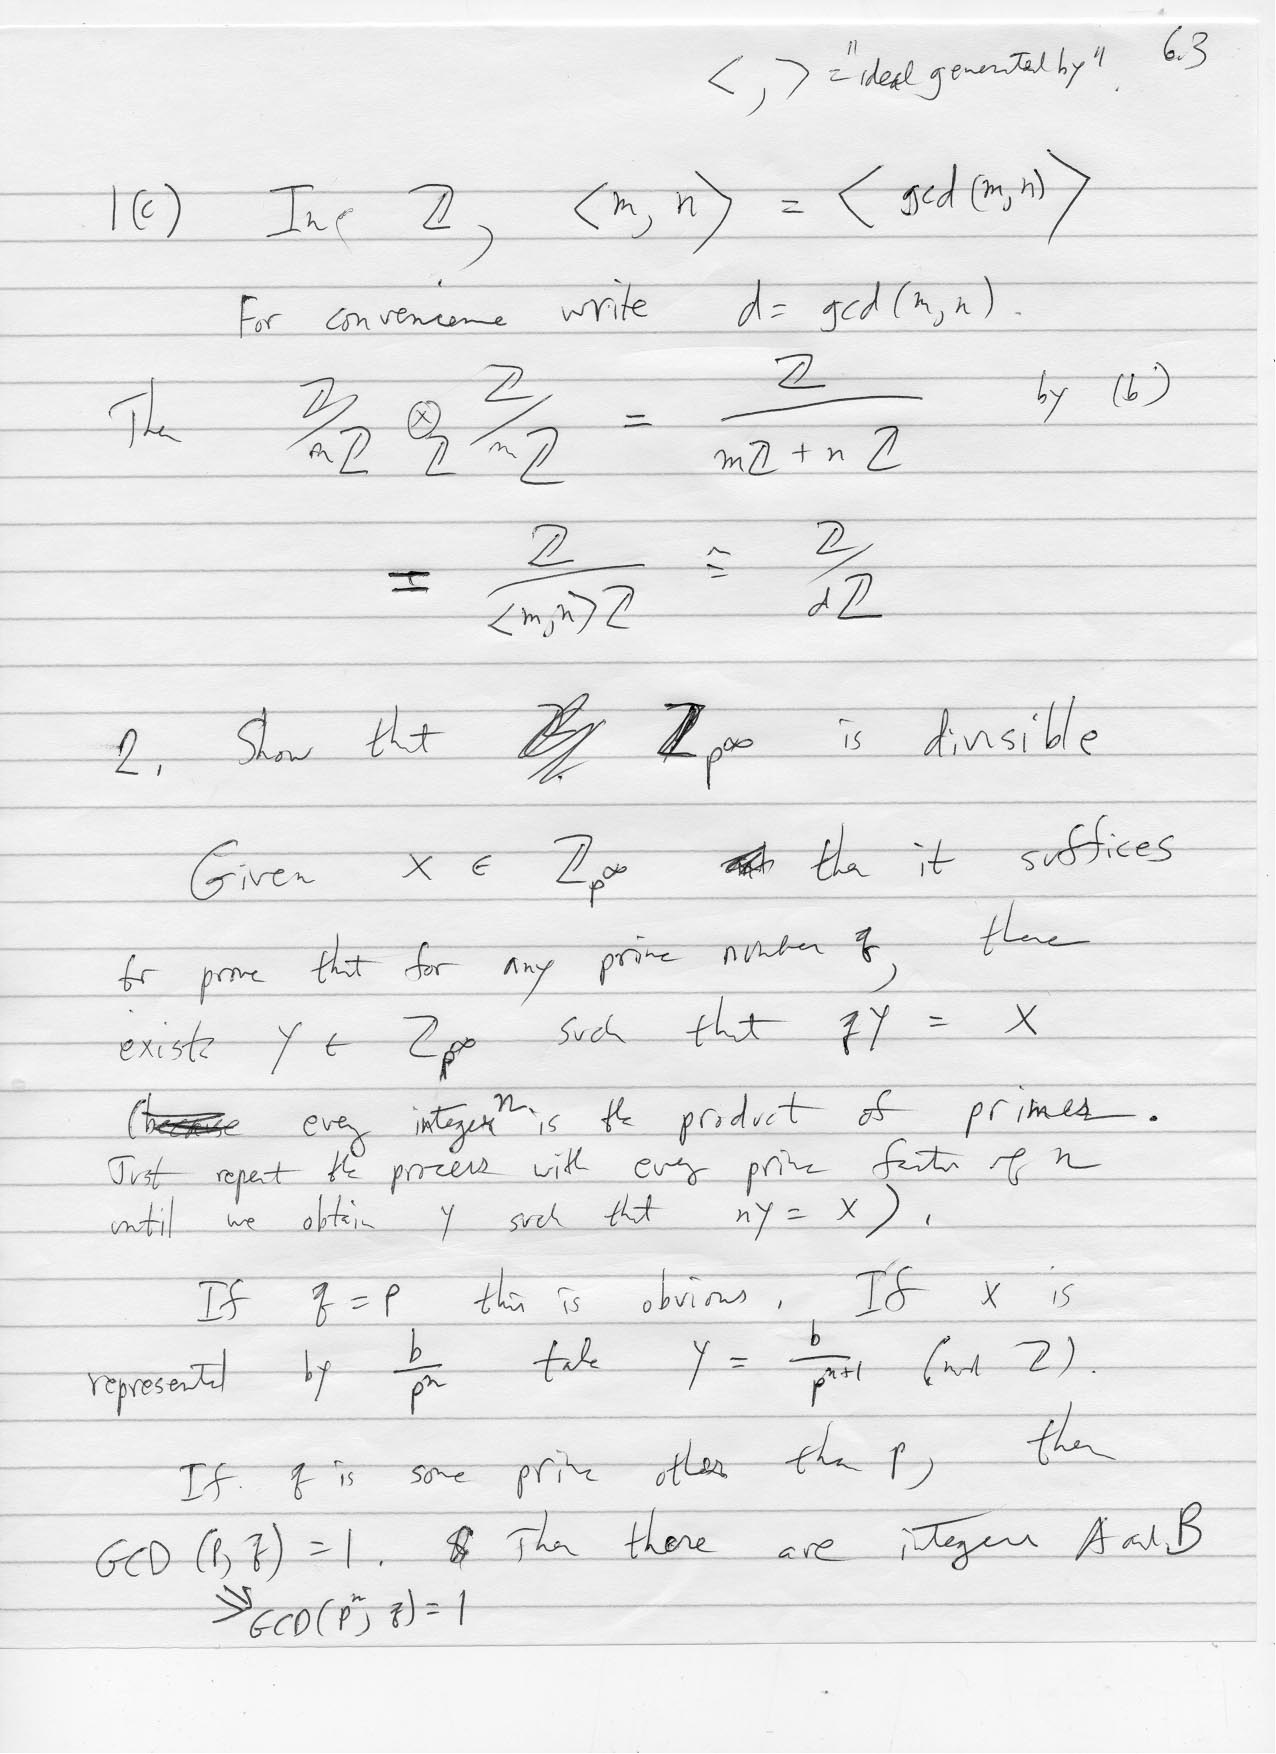 6.3
< , > = "ideal generated by".
1(c) In ℤ, <m, n> = <gcd(m,n)>
For convenience write d = gcd(m, n).
Then ℤ/mℤ ⊗_ℤ ℤ/nℤ = ℤ/(mℤ + nℤ) by (b)
= ℤ/<m,n>ℤ ≅ ℤ/dℤ
2. Show that ℤ_p^∞ is divisible
Given x ∈ ℤ_p^∞ then it suffices
to prove that for any prime number q, there
exists y ∈ ℤ_p^∞ such that qy = x
(every integer n is the product of primes.
Just repeat the process with every prime factor of n
until we obtain y such that ny = x).
If q = p this is obvious. If x is
represented by b/p^n take y = b/p^(n+1) (mod ℤ).
If q is some prime other than p, then
GCD(p, q) = 1. Then there are integers A and B
⇒ GCD(p^n, q) = 1